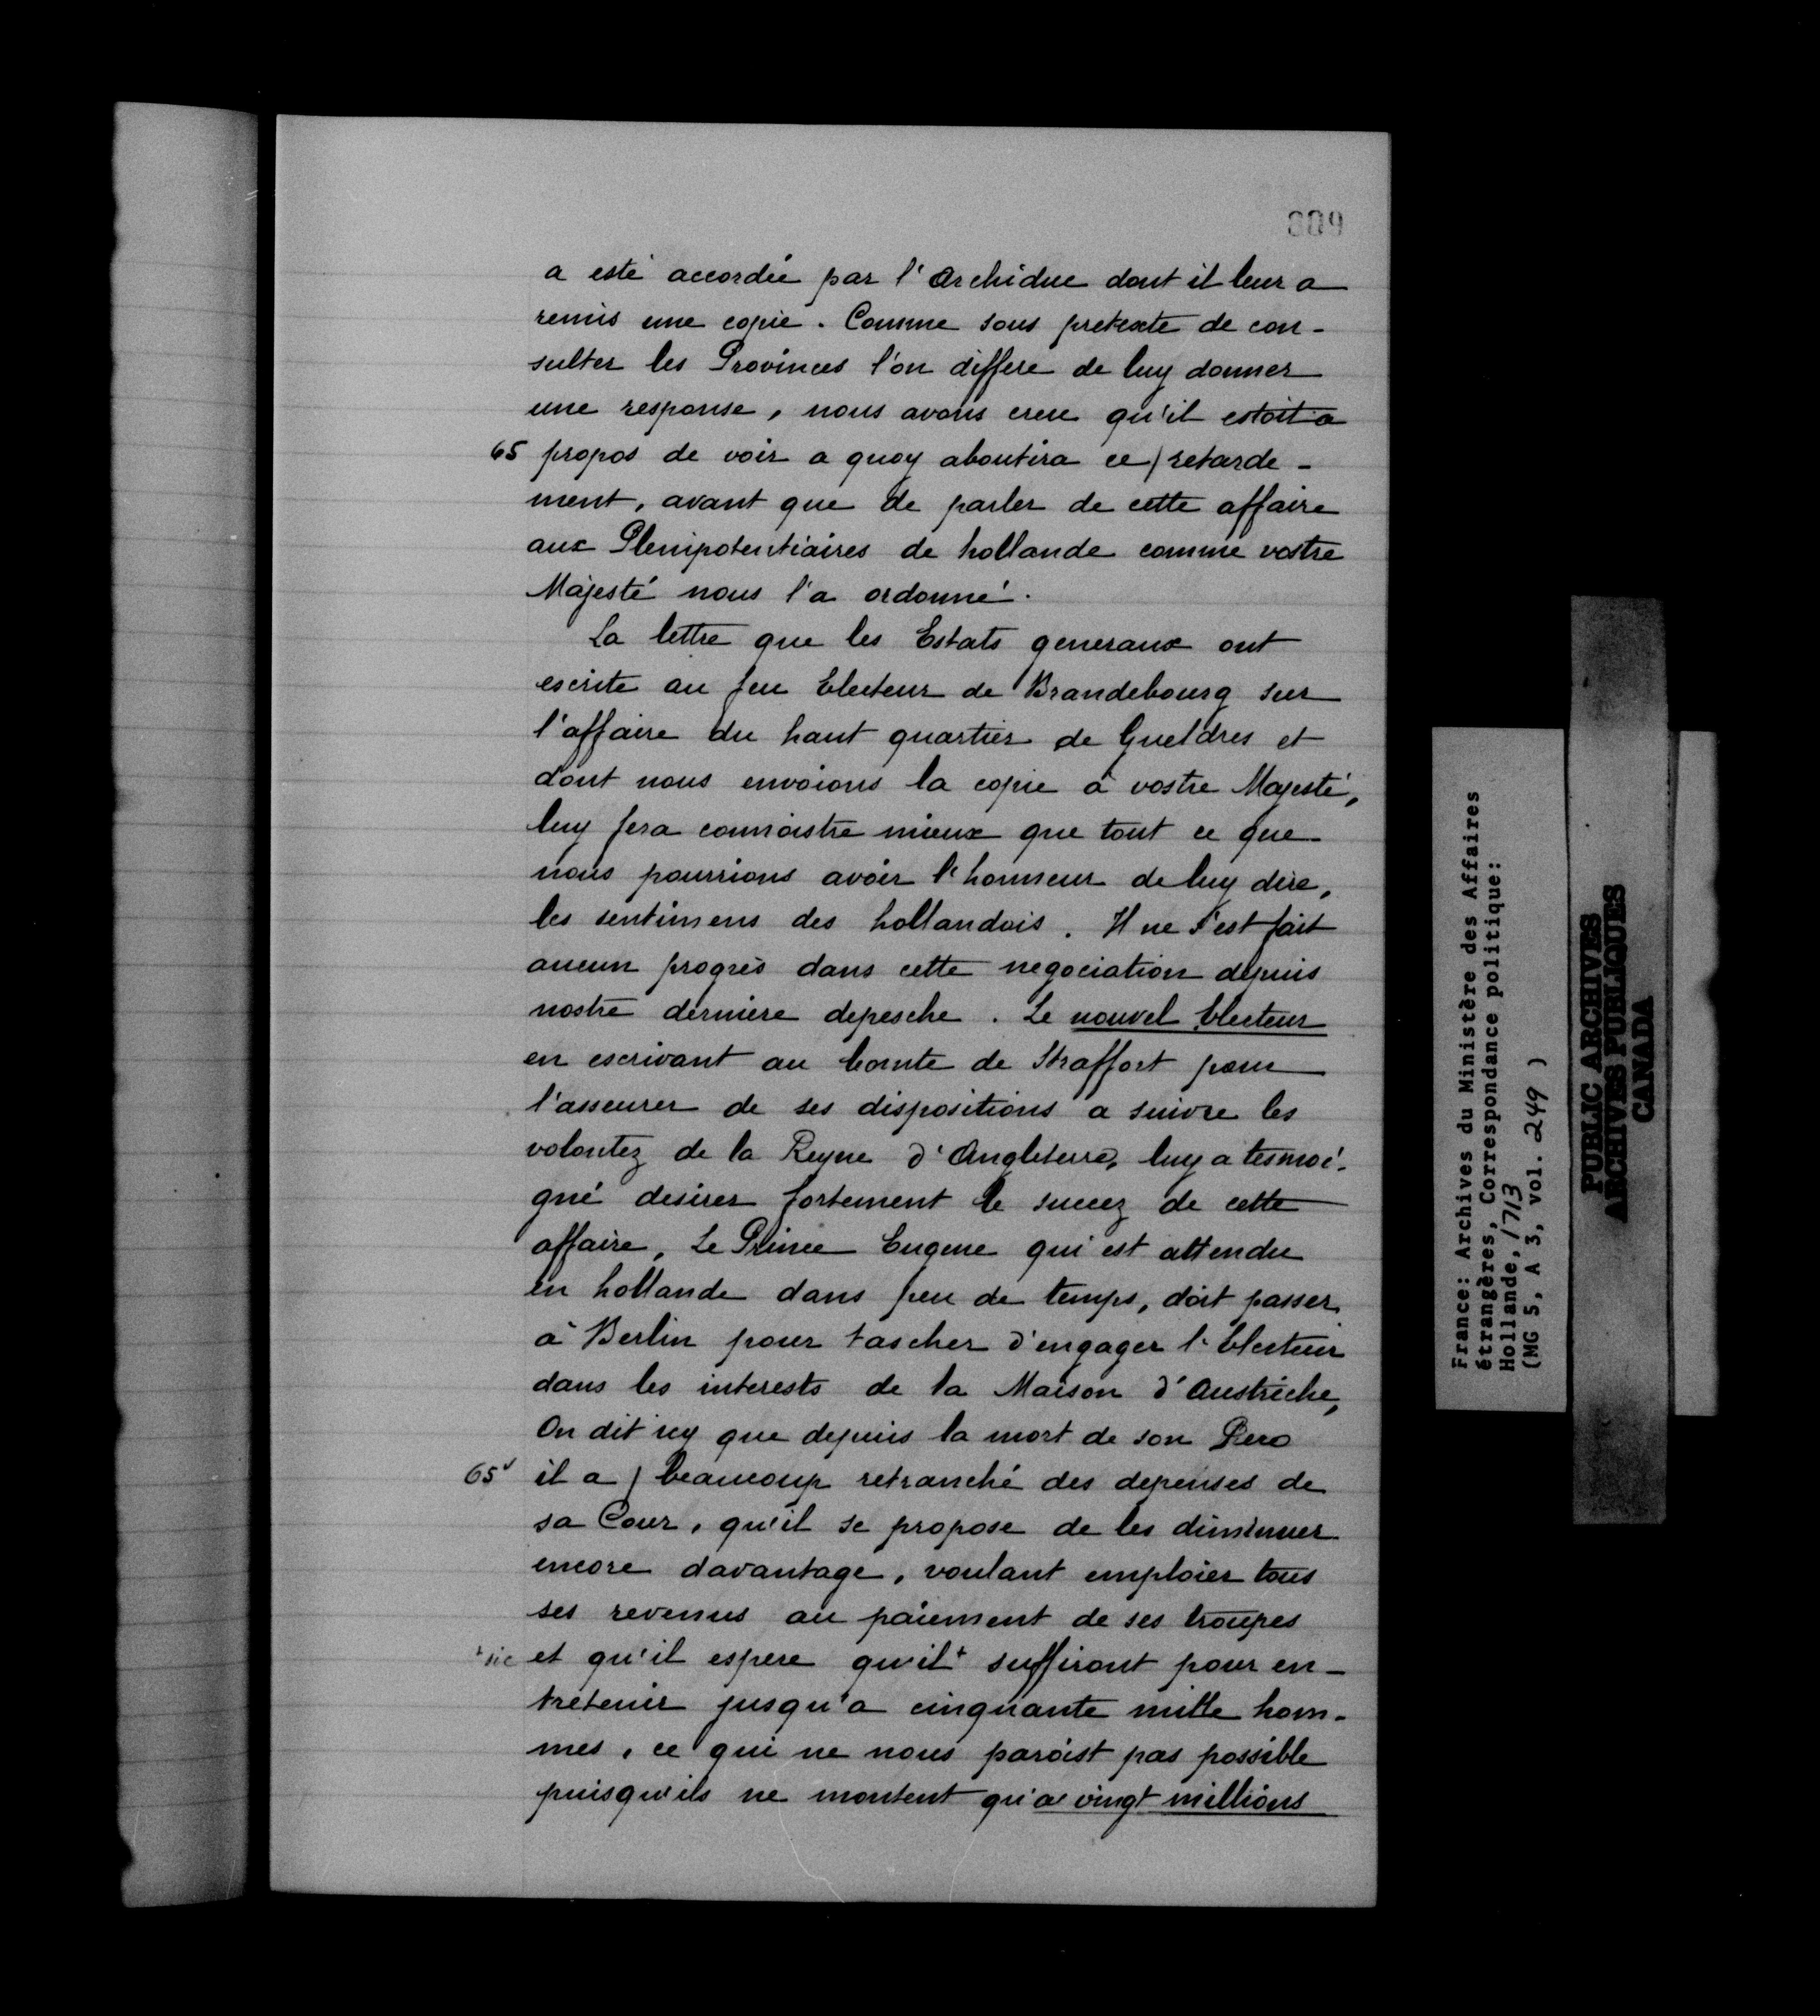 609
a esté accordée par l'Archiduc dont il leur a
remis une copie. Comme sous pretexte de con-
sulter les Provinces l'on differe de luy donner
une response, nous avons creu qu'il estoit a
65 propos de voir a quoy aboutira ce / retarde-
ment, avant que de parler de cette affaire
aux Plenipotentiaires de hollande comme vostre
Majesté nous l'a ordonné.
La lettre que les Estats generaux ont
escrite au feu Electeur de Brandebourg sur
l'affaire du haut quartier de Gueldres et
dont nous envoions la copie à vostre Majesté,
luy fera connoistre mieux que tout ce que
nous pourrions avoir l'honneur de luy dire,
les sentimens des hollandois. Il ne s'est fait
aucun progrès dans cette negociation depuis
nostre derniere depesche. Le nouvel Electeur
en escrivant au Comte de Straffort pour
l'asseurer de ses dispositions a suivre les
volontez de la Reyne d'Angleterre, luy a tesmoi-
gné desirer fortement le succez de cette
affaire, Le Prince Eugene qui est attendu
en hollande dans peu de temps, doit passer
à Berlin pour tascher d'engager l'Electeur
dans les interests de la Maison d'Austriche,
On dit icy que depuis la mort de son Pere
65v il a / beaucoup retranché des depenses de
sa Cour, qu'il se propose de les diminuer
encore davantage, voulant emploier tous
ses revenus au paiement de ses troupes
+sic et qu'il espere qu'il+ suffiront pour en-
tretenir jusqu'a cinquante mille hom-
mes, ce qui ne nous paroist pas possible
puisqu'ils ne montent qu'a vingt millions
France: Archives du Ministère des Affaires
étrangères, Correspondance politique:
Hollande, 1713
(MG 5, A 3, vol. 249 )
PUBLIC ARCHIVES
ARCHIVES PUBLIQUES
CANADA